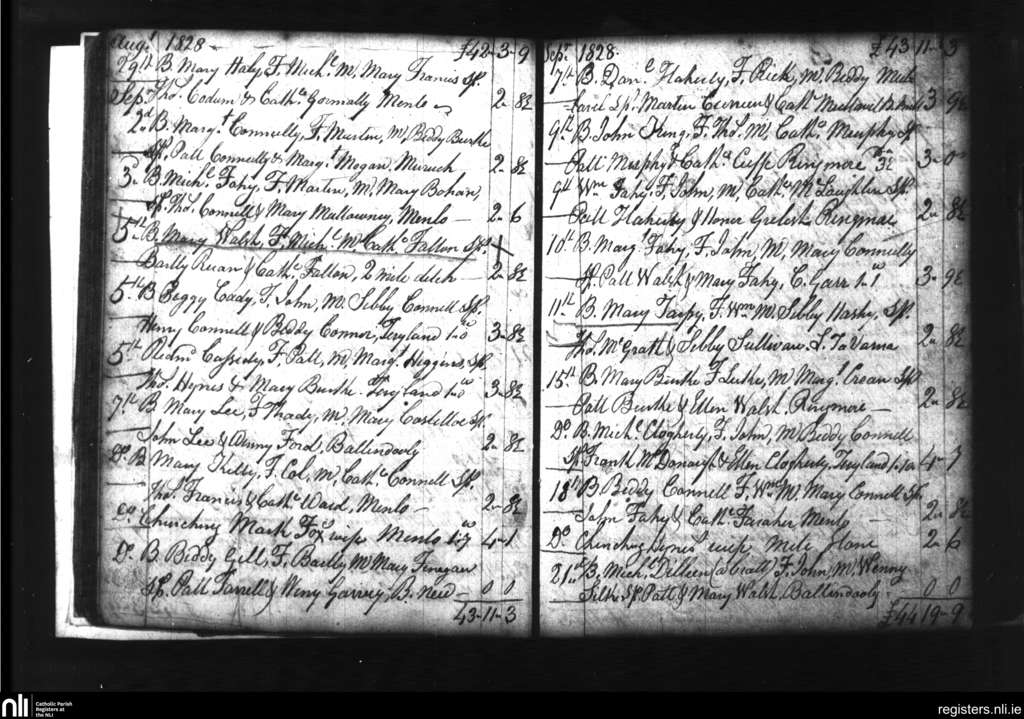 Augt 1828 £42-3-9
29th B. Mary Haly, F. Michl. M, Mary Francis Sp.
Thos. Codum & Cathe. Gormally Menlo 2-8½
Sepr.
2d B. Margt. Connelly, F. Martin, M, Biddy Burke
Sp. Patt Connelly & Margt. Mogan, 2-8½
3d B. Michl. Fahy, F. Martin, M, Mary Bohan,
Sp. Thos. Connell & Mary Mallowney, Menlo 2-6
5th B. Mary Walsh, F. Michl. M Cathe. Fallon Sp.
Bartly Ruan & Cathe. Fallon, 2 mile ditch 2-8½
5th B Peggy Cady, F. John, M. Sibby Connell Sp.
Henry Connell & Biddy Connor, Teryland 3-8½
5th Redmd Casserly, F. Patt, M, Margt. Higgins, Sp.
Thos. Hynes & Mary Burke Teryland 3-8½
7th B. Mary Lee, F Thady, M. Mary Costelloe Sp.
John Lee & Anny Ford, Ballindooly 2-8½
Do. B Mary Kelly, F. Col, M, Cathe. Connell Sp.
Thos. Francis & Cathe. Ward, Menlo 2-8½
Do Churching Mark Fox wife Menlo 4-1
Do. B. Biddy Gill, F, Bartly M Mary Finegan
Sp. Patt Farrell & Winy Garvey, B. 0 0
43-11-3
Sepr. 1828. £43-11-3
7th B. Danl. Flaherty, F. Rick, M. Biddy
Sp. Martin & Cathe. 3 9½
9th B. John King, F. Thos. M, Cathe. Murphy Sp
Patt Murphy & Cathe. Cuffe Ringmore 3-0
9th Wm Fahy, F. John, M, Cathe. McLaughlin Sp.
Patt Flaherty & Honor Grelish Ringmore 2-8½
10th B. Margt. Fahy, F. John, M, Mary Connelly
Sp. Patt Walsh & Mary Fahy, C. Garr 3-9½
11th B. Mary Tarpy, F. Wm. M. Sibby Sp.
Thos. McGrath & Sibby Sullivan 2-8½
15th B. Mary Burke F Luke, M Margt. Crean Sp
Patt Burke & Ellen Walsh Ringmore 2-8½
Do B. Michl. Clogherty, F. John, M Biddy Connell
Sp. Frank McDonaugh & Ellen Clogherty, Teryland 4-7
18th B. Biddy Connell F, Wm M, Mary Connell Sp.
John Fahy & Cathe. Faraher Menlo 2-8½
Do Churching wife, Mile 2-6
21st B, Michl. Dilleen F. John, M. Winny
Silk Sp. Patt & Mary Walsh Ballindooly 0 0
£44 19-9
nli
Catholic Parish
Registers at
the NLI
registers.nli.ie